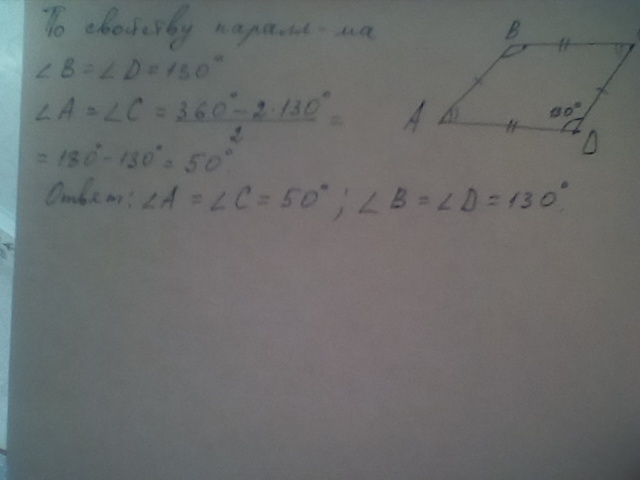 По свойству паралл-ма
∠B = ∠D = 130°
∠A = ∠C = (360° - 2·130°)/2 =
= 180° - 130° = 50°
Ответ: ∠A = ∠C = 50°; ∠B = ∠D = 130°.
B
A
130°
D